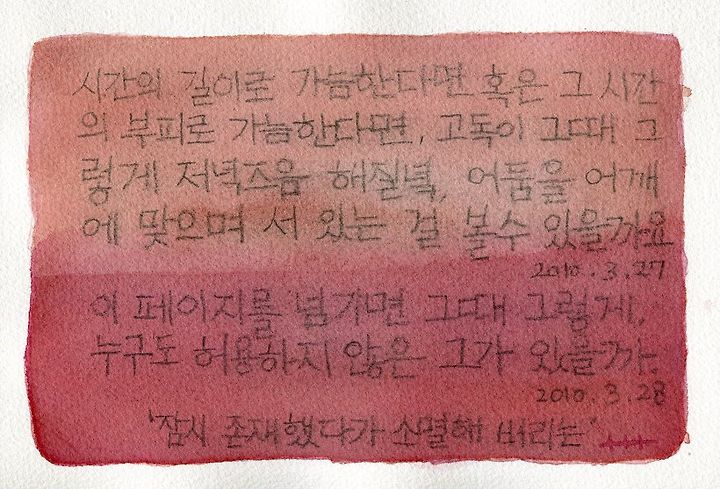 시간의 길이로 가늠한다면 혹은 그 시간
의 부피로 가늠한다면, 고독이 그때 그
렇게 저녁즈음 해질녘, 어둠을 어깨
에 맞으며 서 있는 걸 볼수 있을까요
2010.3.27
이 페이지를 넘기면 그때 그렇게,
누구도 허용하지 않은 그가 있을까.
2010.3.28
'잠시 존재했다가 소멸해 버리는'